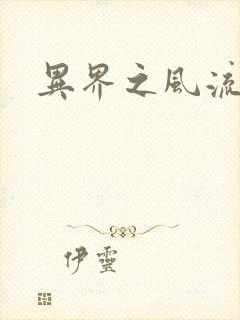 異界之風流
伊靈